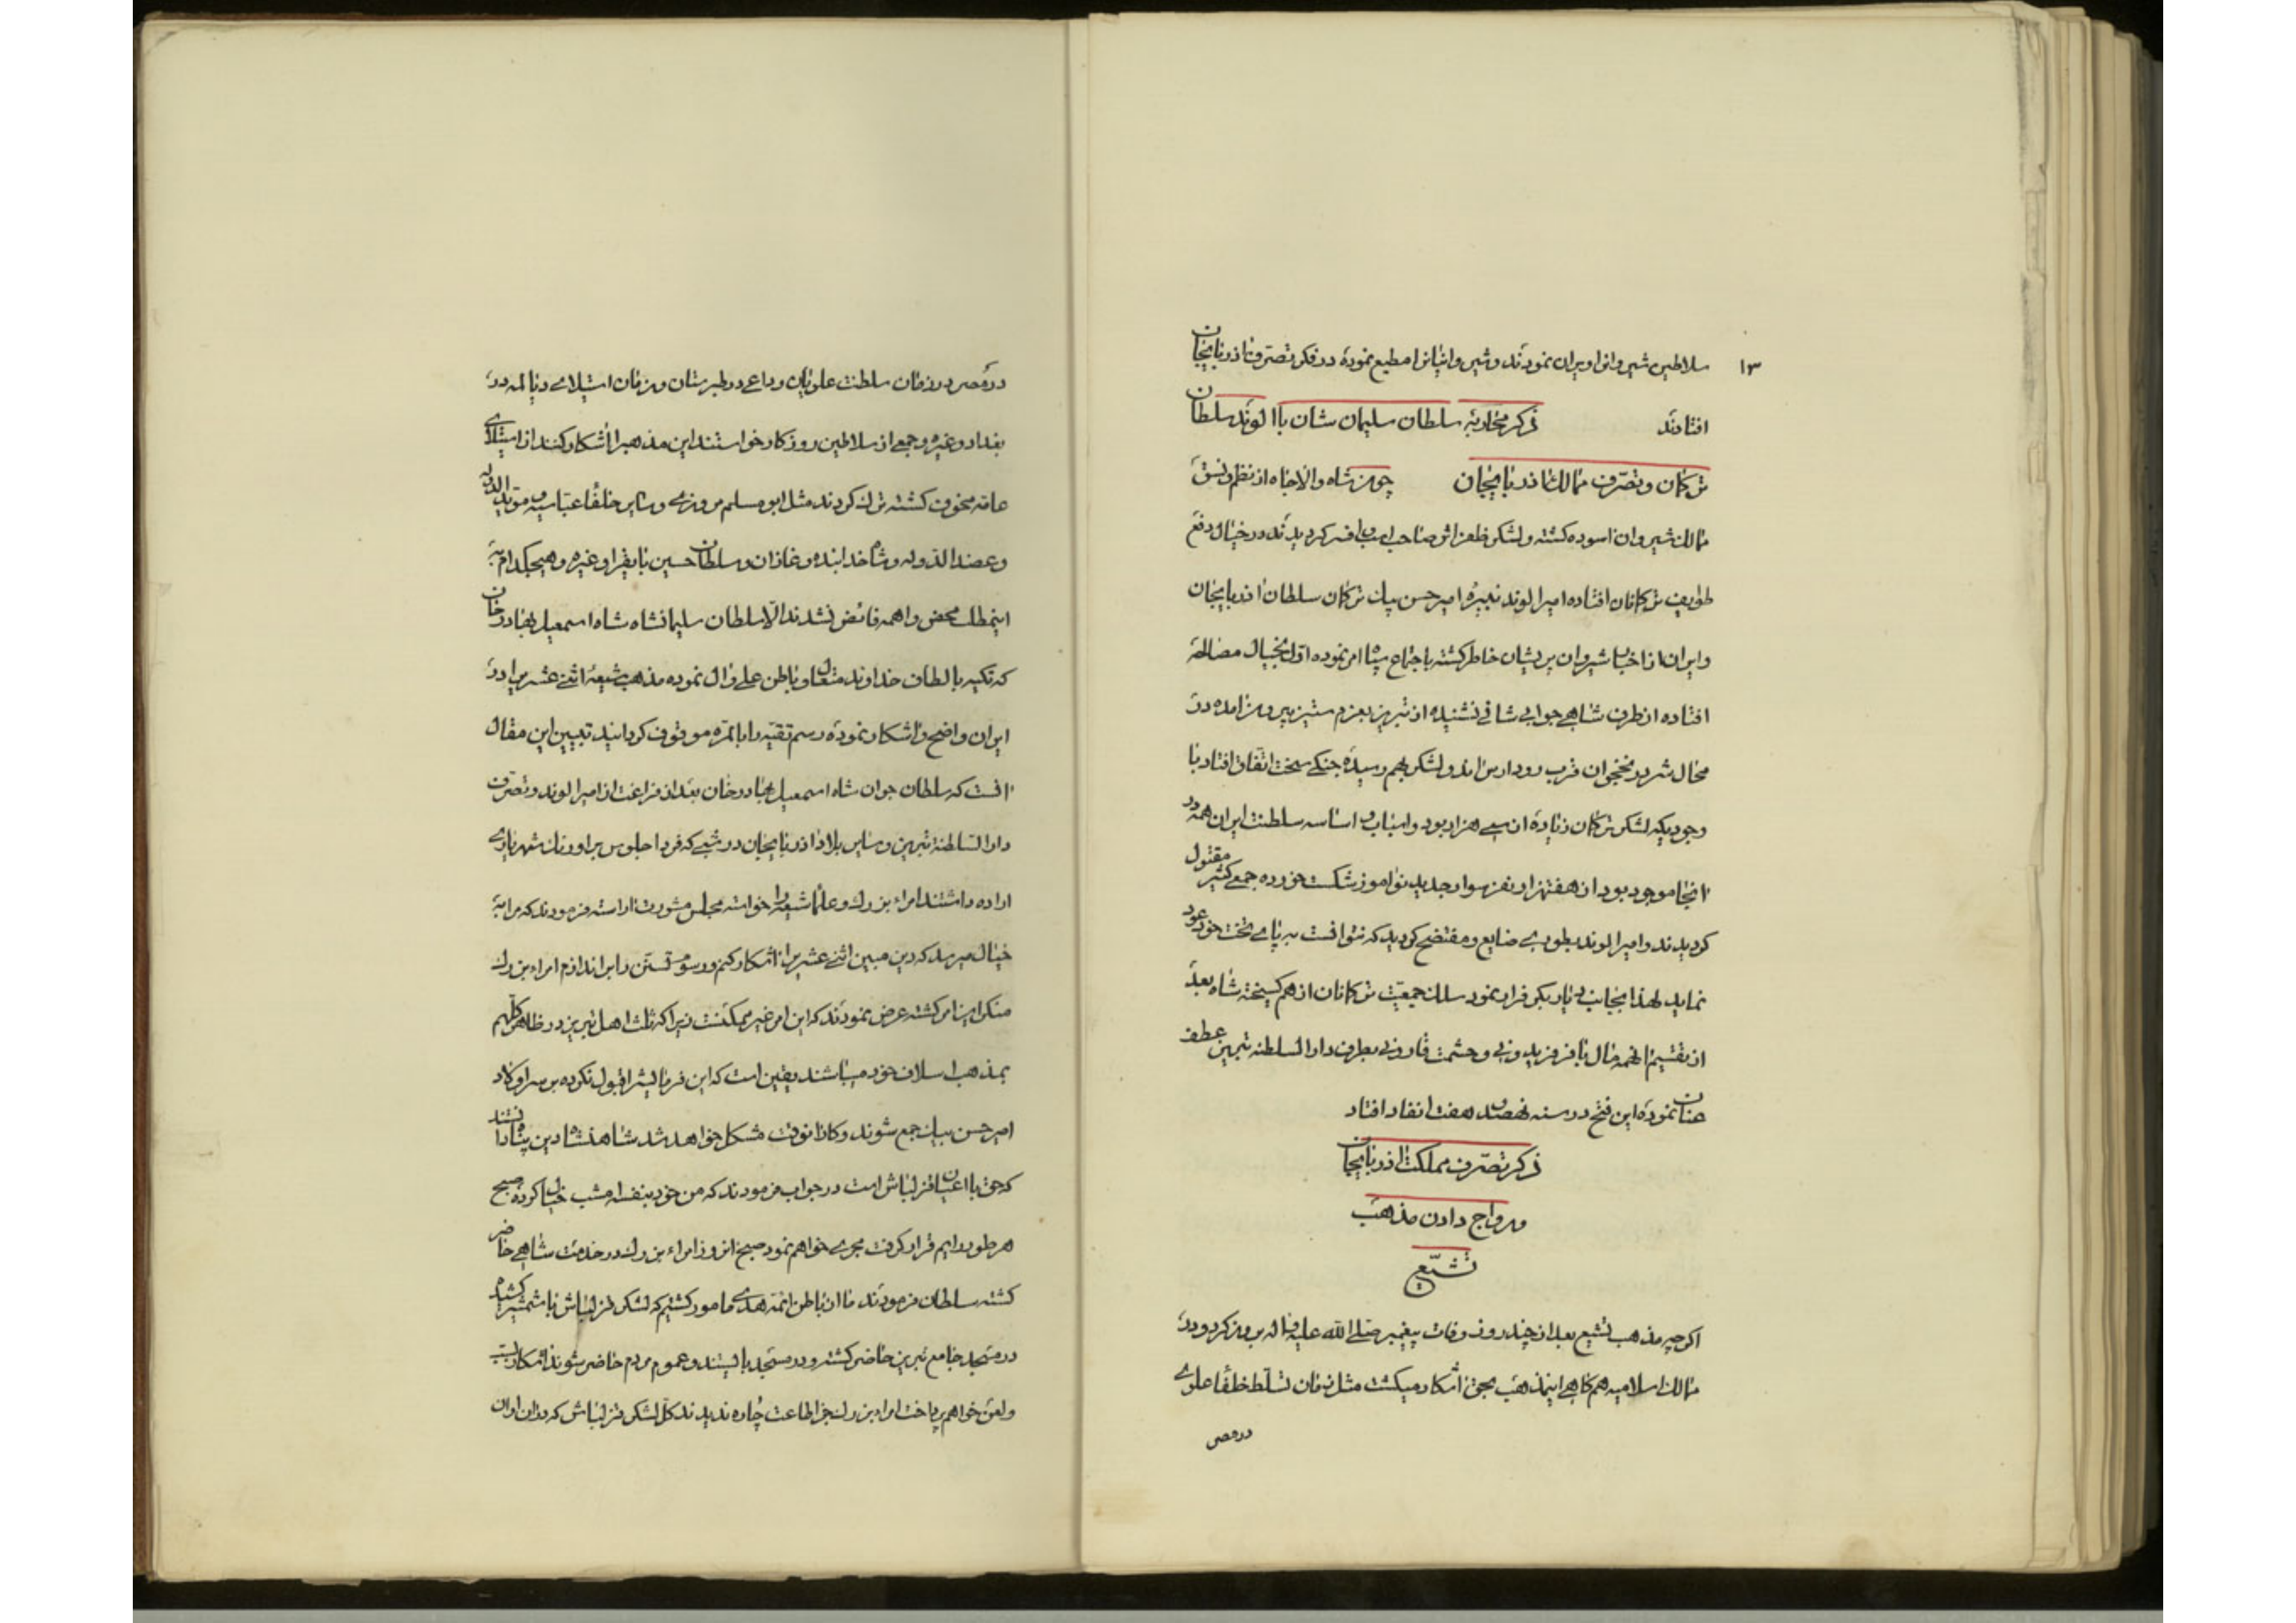 ١٣
سلاطین شیروانرا ویران نمودند و شیروانیانرا مطیع نموده در فکر تصرف آذربایجان
افتادند ذکر محاربه سلطان سلیمان شان با الوند سلطان
ترکمان و تصرف ممالک آذربایجان چون شاه والاجاه از نظم و نسق
ممالک شیروان آسوده گشته و لشکر ظفر اثر صاحب اسباب و افسر گردیدند در خیال دفع
طوایف ترکمانان افتاده امیر الوند نبیرهٔ امیر حسن بیک ترکمان سلطان آذربایجان
و ایران از اخبار شیروان پریشان خاطر گشته باجتماع سپاه امر نموده اول بخیال مصالحه
افتاده از طرف شاهی جوابی شافی نشنیده از تبریز بعزم ستیز بیرون آمده در
محال شرور نخجوان قرب رود ارس اندو لشکر بهم رسیده جنگی سخت اتفاق افتاد با
وجودیکه لشکر ترکمان زیاده از سی هزار بود و اسباب و اساسه سلطنت ایران همه در
آنجا موجود بود از هفتهزار نفر سوار جدید نوآموز شکست خورده جمعی کثیر مقتول
گردیدند و امیر الوند بطوری ضایع و مفتضح گردید که نتوانست به پای تخت خود عود
نماید لهذا بجانب دیار بکر فرار نمود سلک جمعیت ترکمانان از هم گسیخته شاه بعد
از تقسیم آنهمه مال با فر فریدونی و حشمت قارونی بطرف دار السلطنه تبریز عطف
عنان نموده این فتح در سنه نهصد و هفت اتفاق افتاد
ذکر تصرف مملکت آذربایجان
و رواج دادن مذهب
تشیع
اگرچه مذهب تشیع بعد از چند روز وفات پیغمبر صلی الله علیه و اله بروز کرد و در
ممالک اسلامیه هم گاهی اینمذهب بحق آشکار میگشت مثل زمان تسلط خلفا علوی
در مصر
در مصر و در زمان سلطنت علویان و داعی در طبرستان و زمان استیلای دیالمه در
بغداد و غیره و جمعی از سلاطین روزگار خواستند این مذهب را آشکار کنند از استیلای
عامه مخوف گشته ترک کردند مثل ابو مسلم مروزی و سایر خلفا عباسیه و مؤید الدوله
و عضد الدوله و شاه خدابنده و غازان و سلطان حسین بایقرا و غیره و هیچکدام به
اینمطلب محض واهمه فائض نشدند الا سلطان سلیمانشاه شاه اسمعیل بهادر خان
که تکیه بالطاف خداوند متعال و باطن علی و آل نموده مذهب شیعهٔ اثنی عشریرا در
ایران واضح و آشکار نموده رسم تقیه را بالمره موقوف گردانید تبیین این مقال
آنست که سلطان جوان شاه اسمعیل بهادر خان بعد از فراغت از امیر الوند و تصرف
دار السلطنة تبریز و سایر بلاد آذربایجان در شبی که فردا جلوس بر اورنک شهریاری
اراده داشتند امراء بزرک و علما شیعه را خواسته مجلس مشورت آراسته فرمودند که مرا به
خیال میرسد که دین مبین اثنی عشریرا آشکار کنم و رسوم تسنن را براندازم امراء بزرک
منکر این امر گشته عرض نمودند که این امر غیر ممکنست زیرا که ثلث اهل تبریز در ظاهر کلهم
بمذهب اسلاف خود میباشند یقین است که این فرمایشرا قبول نکرده بر سر اولاد
امیر حسن بیک جمع شوند و کار آنوقت مشکل خواهد شد شاهنشاه دین پناه دانستند
که حق با اعیان قزلباش است در جواب فرمودند که من خود بنفسه امشب خیال کرده صبح
هر طور رایم قرار گرفت مجری خواهم نمود صبح آنروز امراء بزرک در خدمت شاهی حاضر
گشته سلطان فرمودند ما از باطن ائمه هدی مامور گشتیم که لشکر قزلباش با شمشیر کشیده
در مسجد جامع تبریز حاضر گشته و در مسجد بایستند و عموم مردم حاضر شوند آشکار بسب
و لعن خواهم پرداخت امراء بزرک جز اطاعت چاره ندیدند کل لشکر قزلباش که در آن اوان